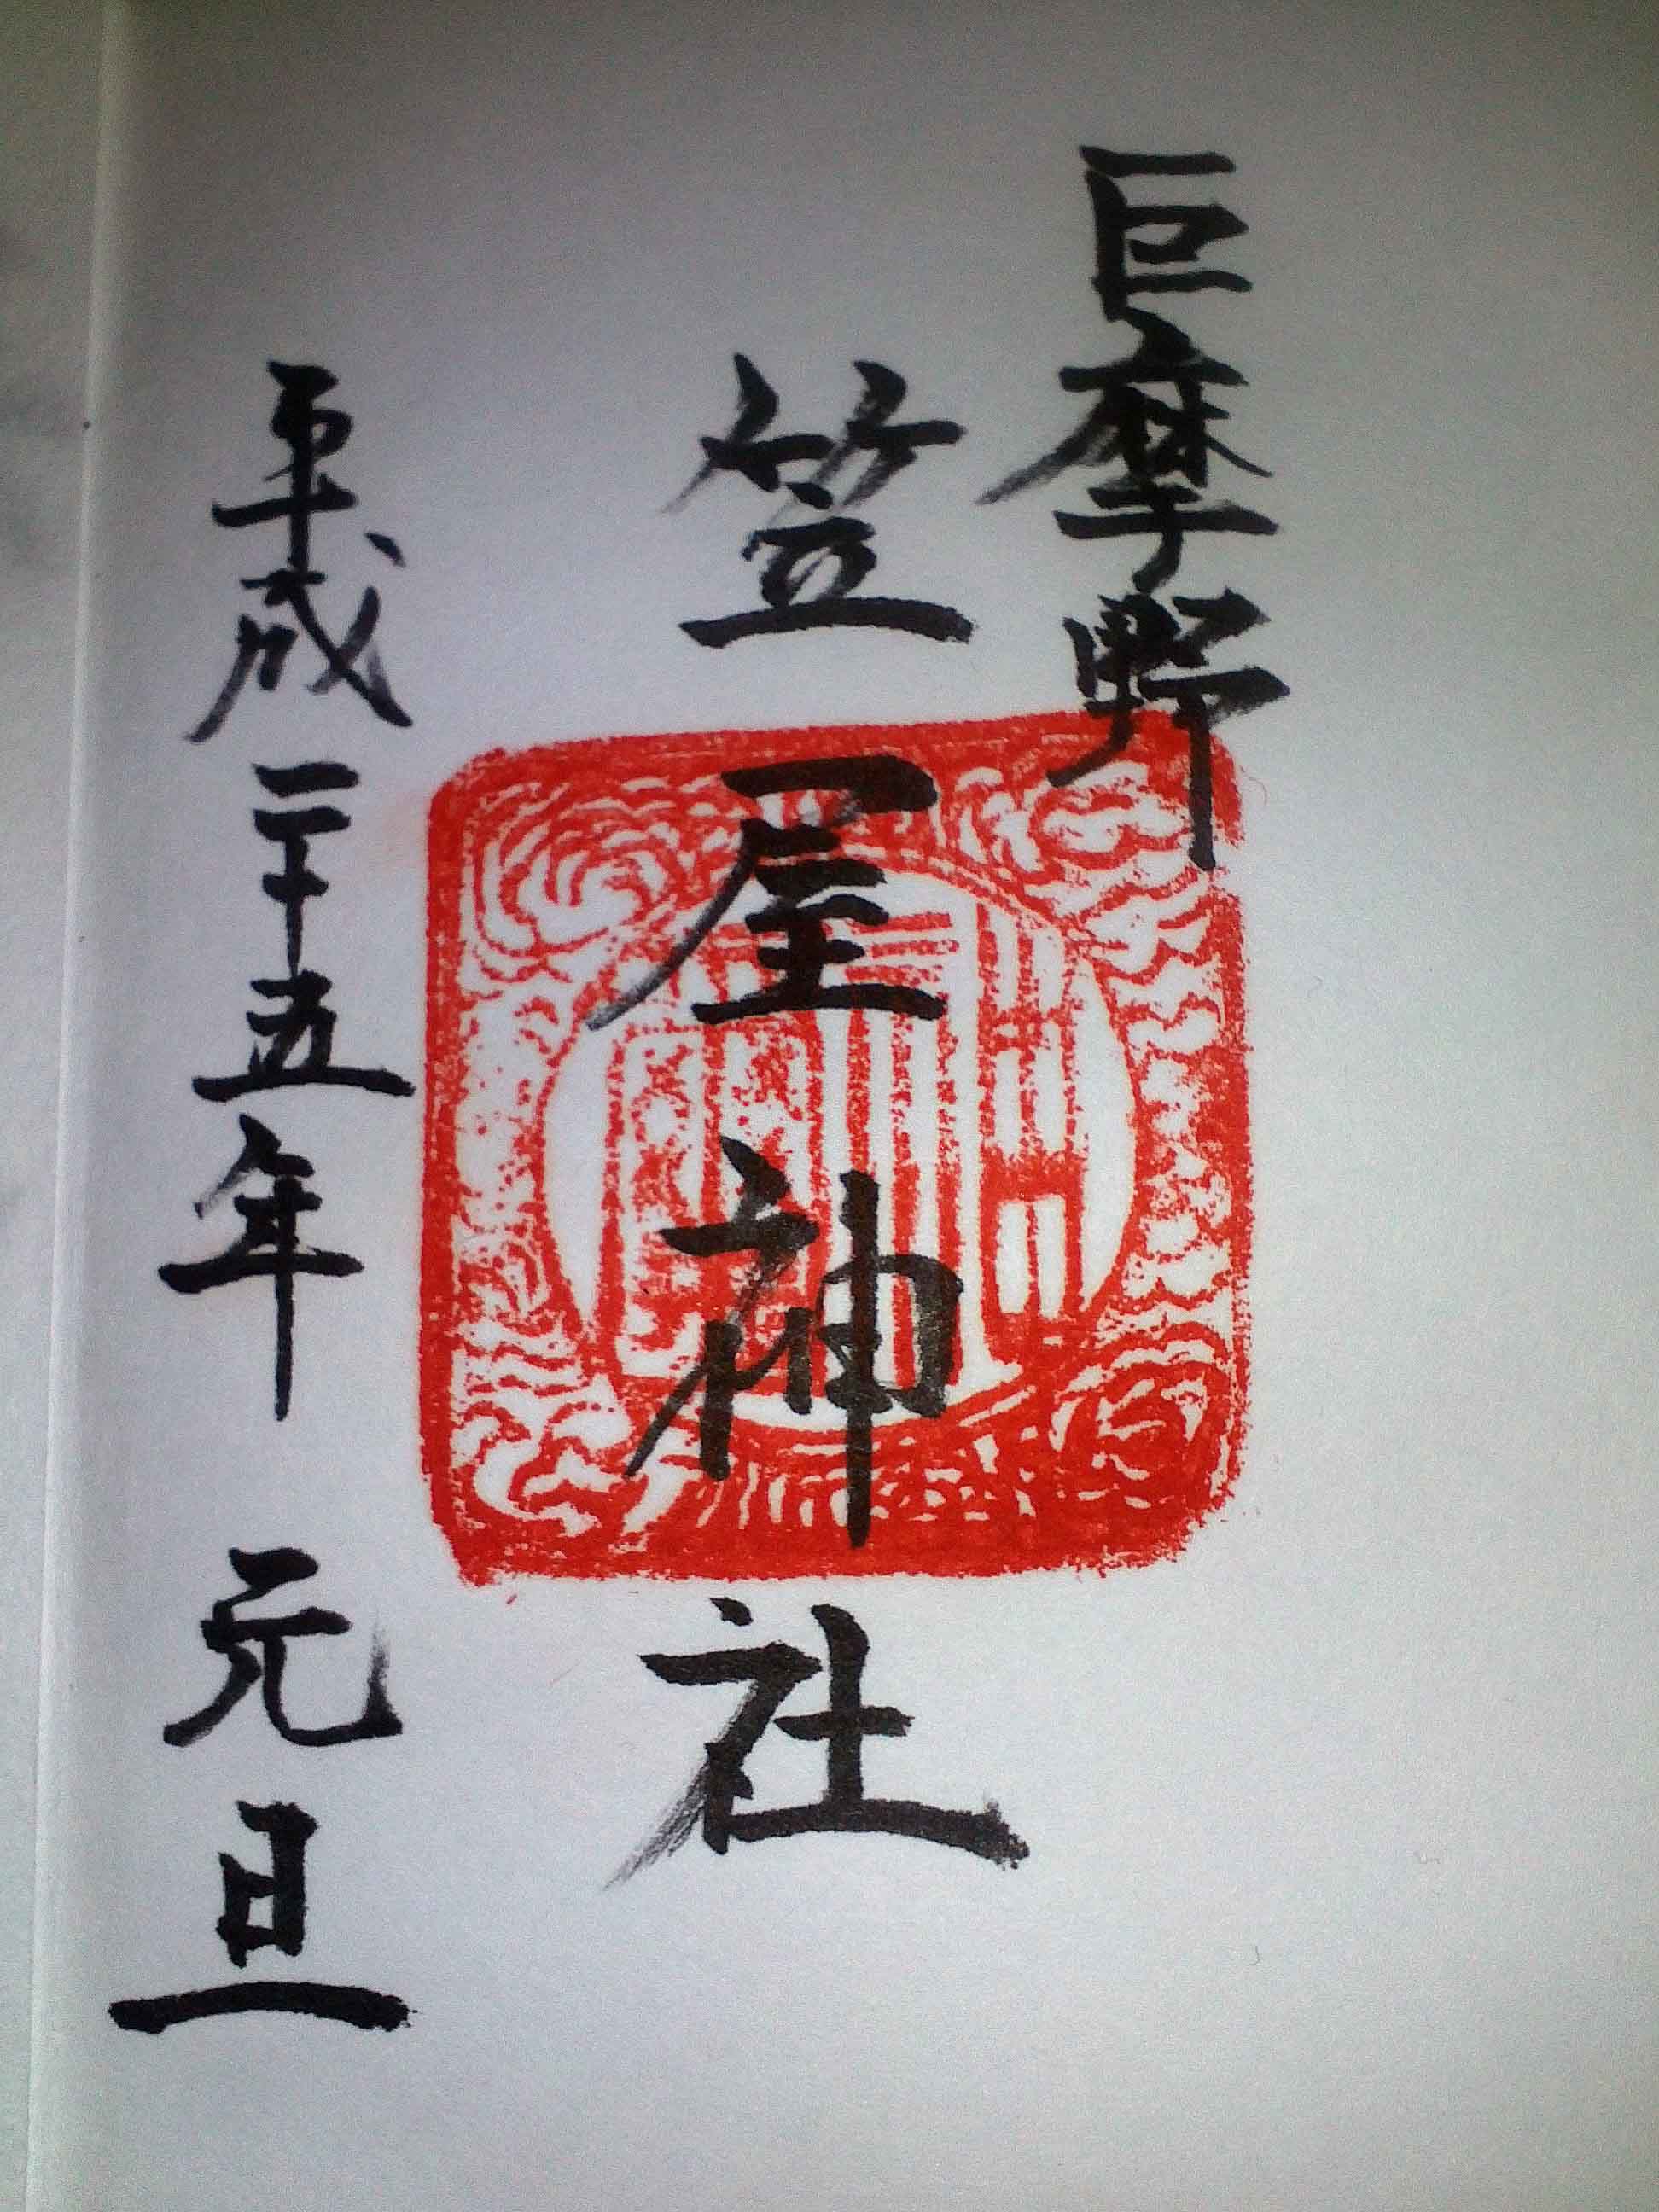 巨摩野
笠屋神社
平成二十五年 元旦